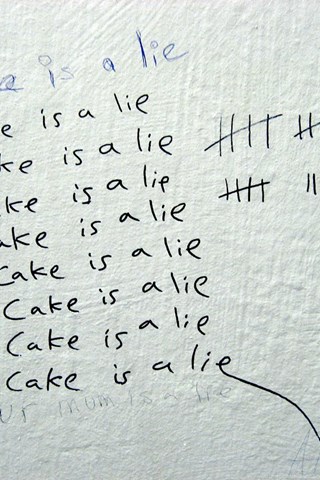 e is a lie
e is a lie
ke is a lie
ke is a lie
ake is a lie
Cake is a lie
Cake is a lie
Cake is a lie
Cake is a lie
ur mum is a lie